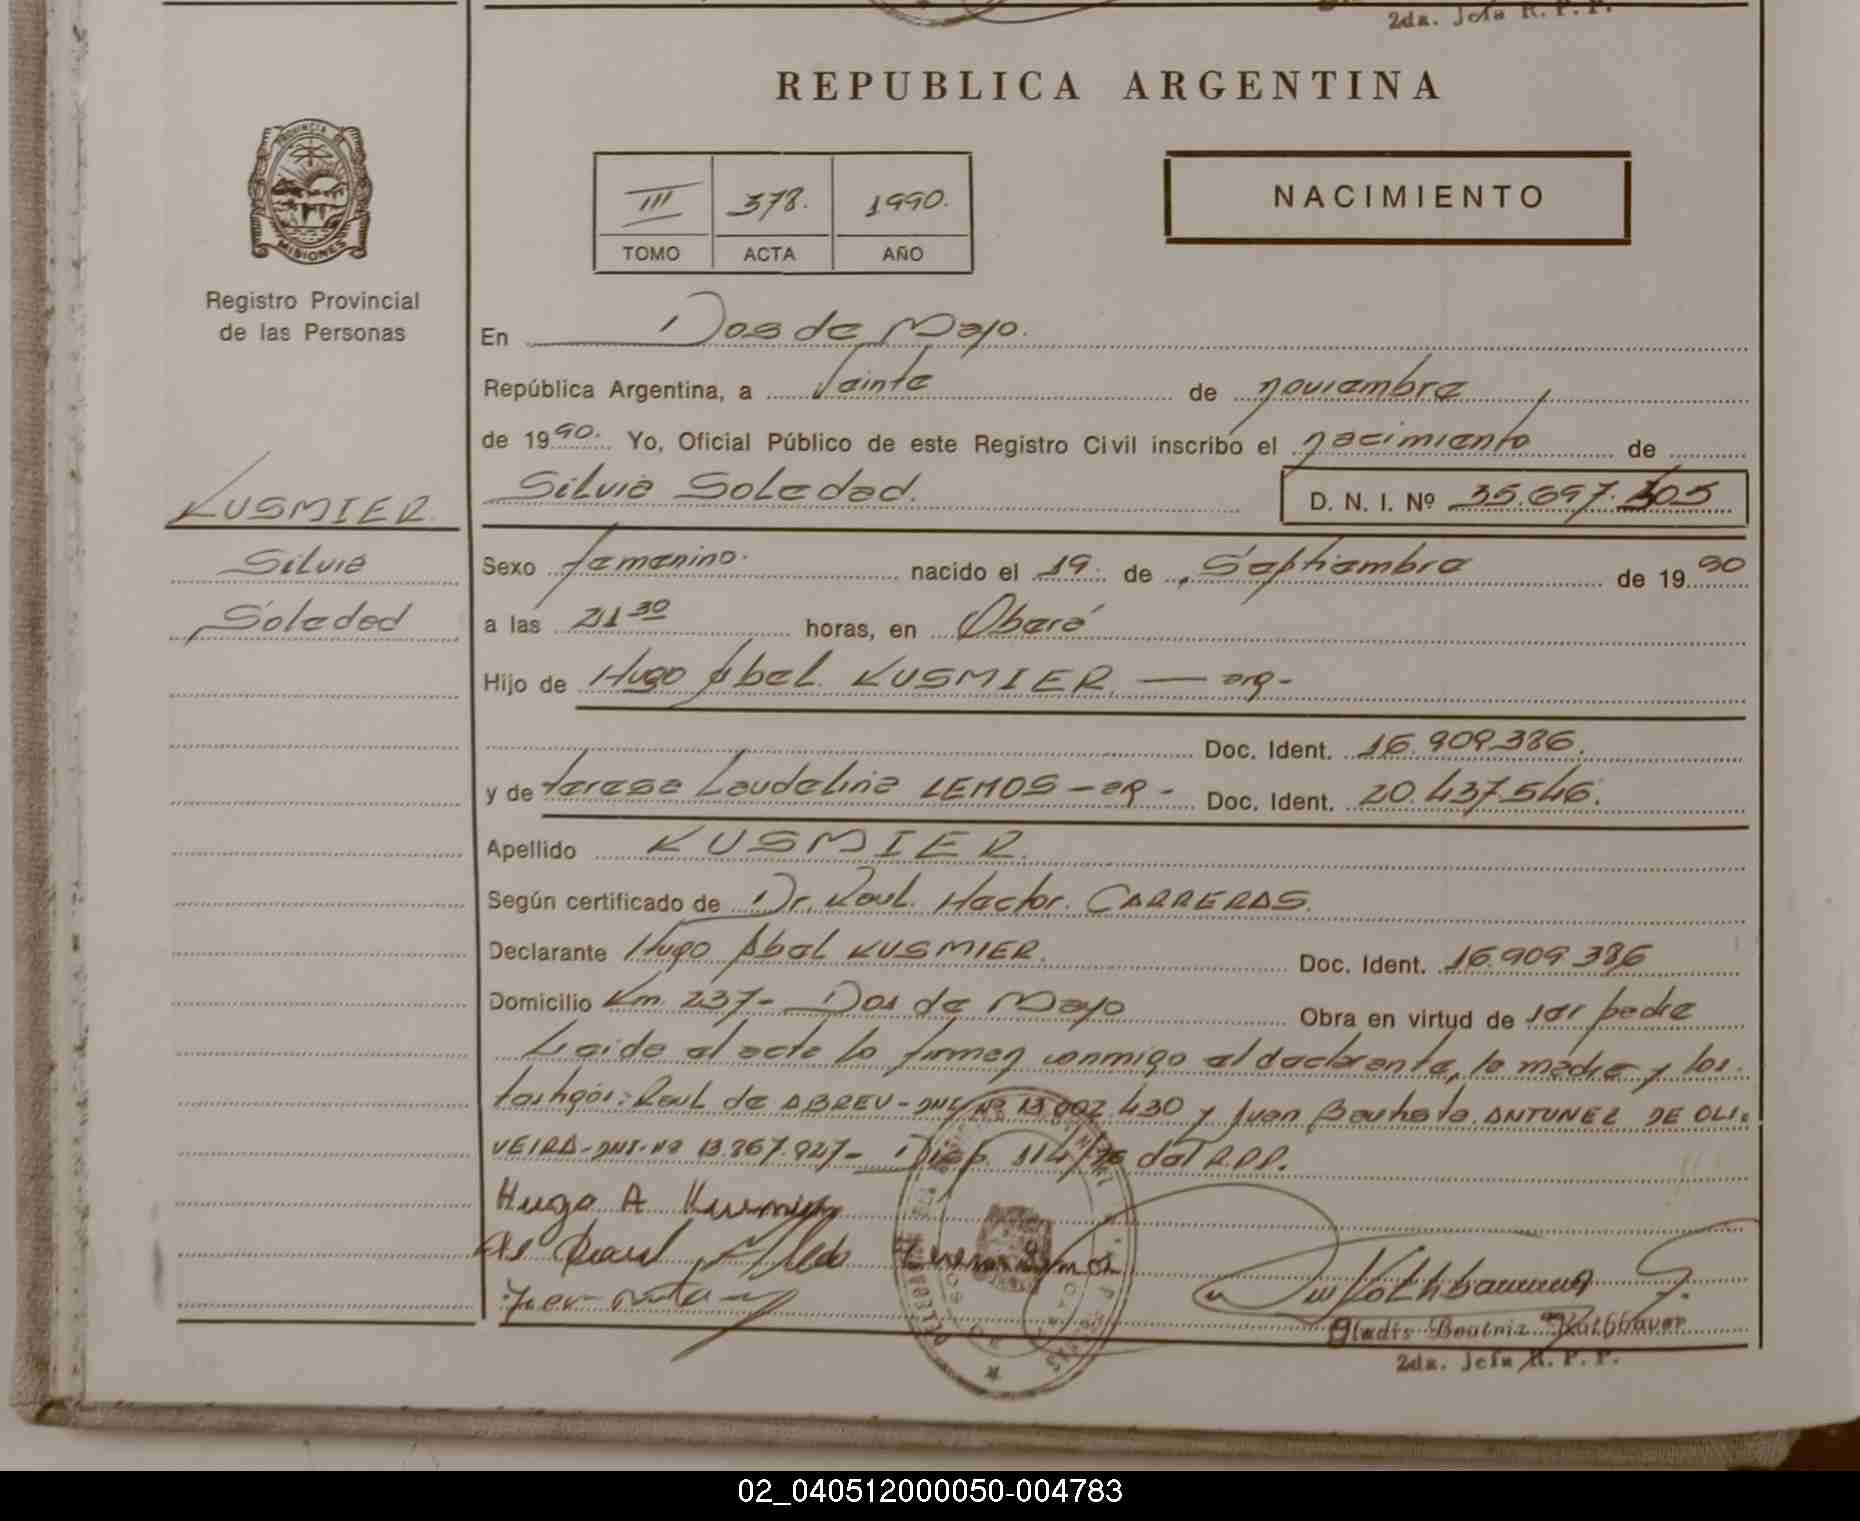 2da. Jefa R. P. P.
REPUBLICA ARGENTINA
PROVINCIA DE
MISIONES
III 378. 1990.
TOMO ACTA AÑO
NACIMIENTO
Registro Provincial
de las Personas
En Dos de Mayo.
República Argentina, a Veinte de noviembre
de 1990. Yo, Oficial Público de este Registro Civil inscribo el nacimiento de
KUSMIER
Silvia Soledad. D. N. I. Nº 35.697.305
Silvia
Soledad
Sexo femenino. nacido el 19. de Septiembre de 1990
a las 21 30 horas, en Oberá
Hijo de Hugo Abel KUSMIER — arg-
Doc. Ident. 16.909.386.
y de teresa Laudelina LEMOS - ar - Doc. Ident. 20.437.546.
Apellido KUSMIER.
Según certificado de Dr. Raul. Hector. CARRERAS.
Declarante Hugo Abel KUSMIER. Doc. Ident. 16.909.386
Domicilio Km. 237- Dos de Mayo Obra en virtud de ser padre
Leida el acta la firman conmigo el declarante, la madre y los
testigos: Raul de ABREU - DNI Nº 13.002.430 y Juan Bautista ANTUNEZ DE OLI-
VEIRA - DNI - Nº 13.867.927 - Disp. 114/76 del R.P.P.
Hugo A Kusmier
Gladis Beatriz Rothbauer
2da. Jefa R. P. P.
02_040512000050-004783